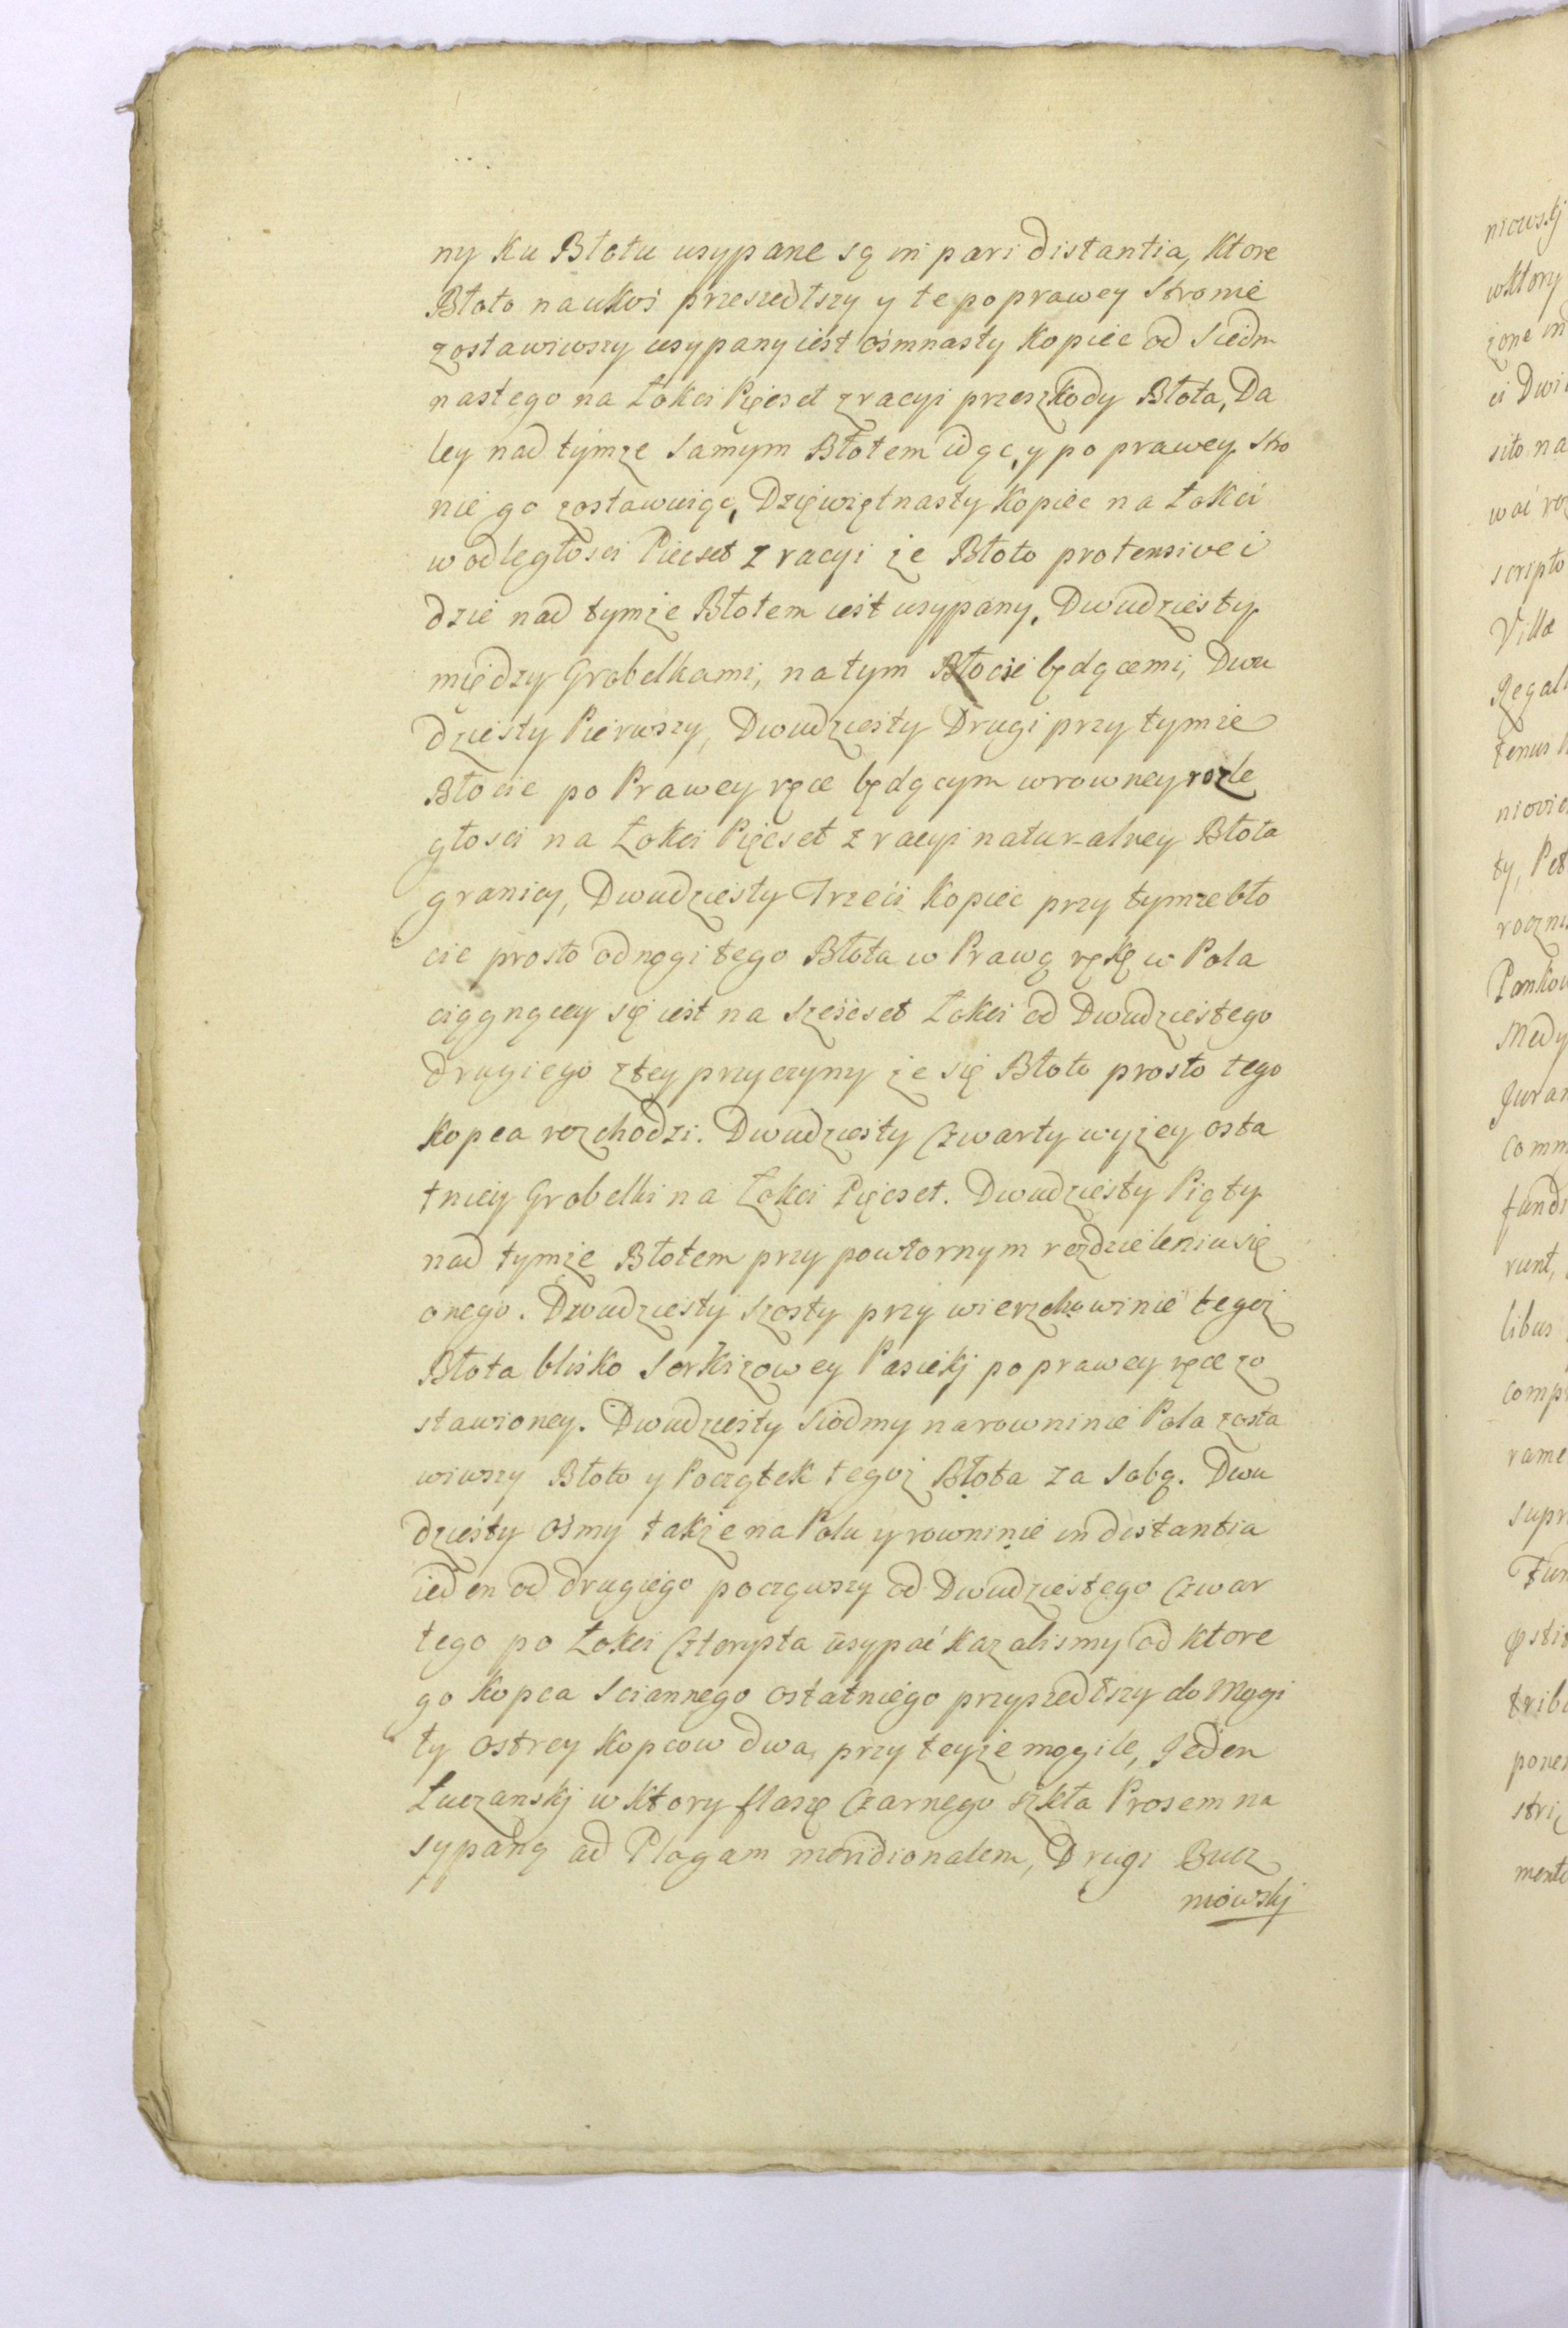 ny ku Błotu usypane są in pari distantia, ktore
Błoto naukoś przeszedłszy y te po prawey Stronie
zostawiwszy usypany iest ośmnasty Kopiec od Siedm
nastego na Łokci Pięcset z racyi przeszkody Błota, Da
ley nad tymze samym Błotem idąc, y po prawey Stro
nie go zostawuiąc, Dziewiętnasty Kopiec na Łokci
w odległosci Piecset z racyi że Błoto protensive i
dzie nad tymże Błotem iest usypany, Dwudziesty
między Grobelkami, na tym Błocie będącemi, Dwu
dziesty Pierwszy, Dwudziesty Drugi przy tymże
Błocie po Prawey ręce będącym w rowney rozle
głosci na Łokci Pięcset z racyi naturalney Błota
granicy, Dwudziesty Trzeci Kopiec przy tymze bło
cie prosto odnogi tego Błota w Prawą rękę w Pola
ciągnącey się iest na Sześcset Łokci od Dwudziestego
drugiego z tey przyczyny że się Błoto prosto tego
Kopca rozchodzi. Dwudziesty Czwarty wyżey osta
tniey Grobelki na Łokci Pięcset. Dwudziesty Piąty
nad tymże Błotem przy powtornym rozdzieleniu się
onego. Dwudziesty Szosty przy wierzchowinie tegoż
Błota blisko Serkizowey Pasiekj po prawey ręce zo
stawioney. Dwudziesty Siodmy na rowninie Pola zosta
wiwszy Błoto y Początek tegoż Błota za Sobą. Dwu
dziesty Osmy także na Polu y rowninie in distantia
ieden od drugiego począwszy od Dwudziestego Czwar
tego po Łokci Czterysta usypać kazalismy od ktore
go Kopca Sciannego ostatniego przyszedłszy do Mogi
ły ostrey Kopcow dwa, przy teyże mogile, Jeden
Łuczanskj w ktory flaszę Czarnego szkła Prosem na
sypaną ad Plagam meridionalem, Drugi Bucz
niowskj
niowskj
w ktory
zone in
ci Dwi
sito na
wać roz
scripto
Villæ
Regali
tenus
niovie
ty, Pet
roczni
Pankow
Medy
Juram
Comm
fundi
runt,
libus
comp
rame
supr
Fun
tribu
ponen
mento